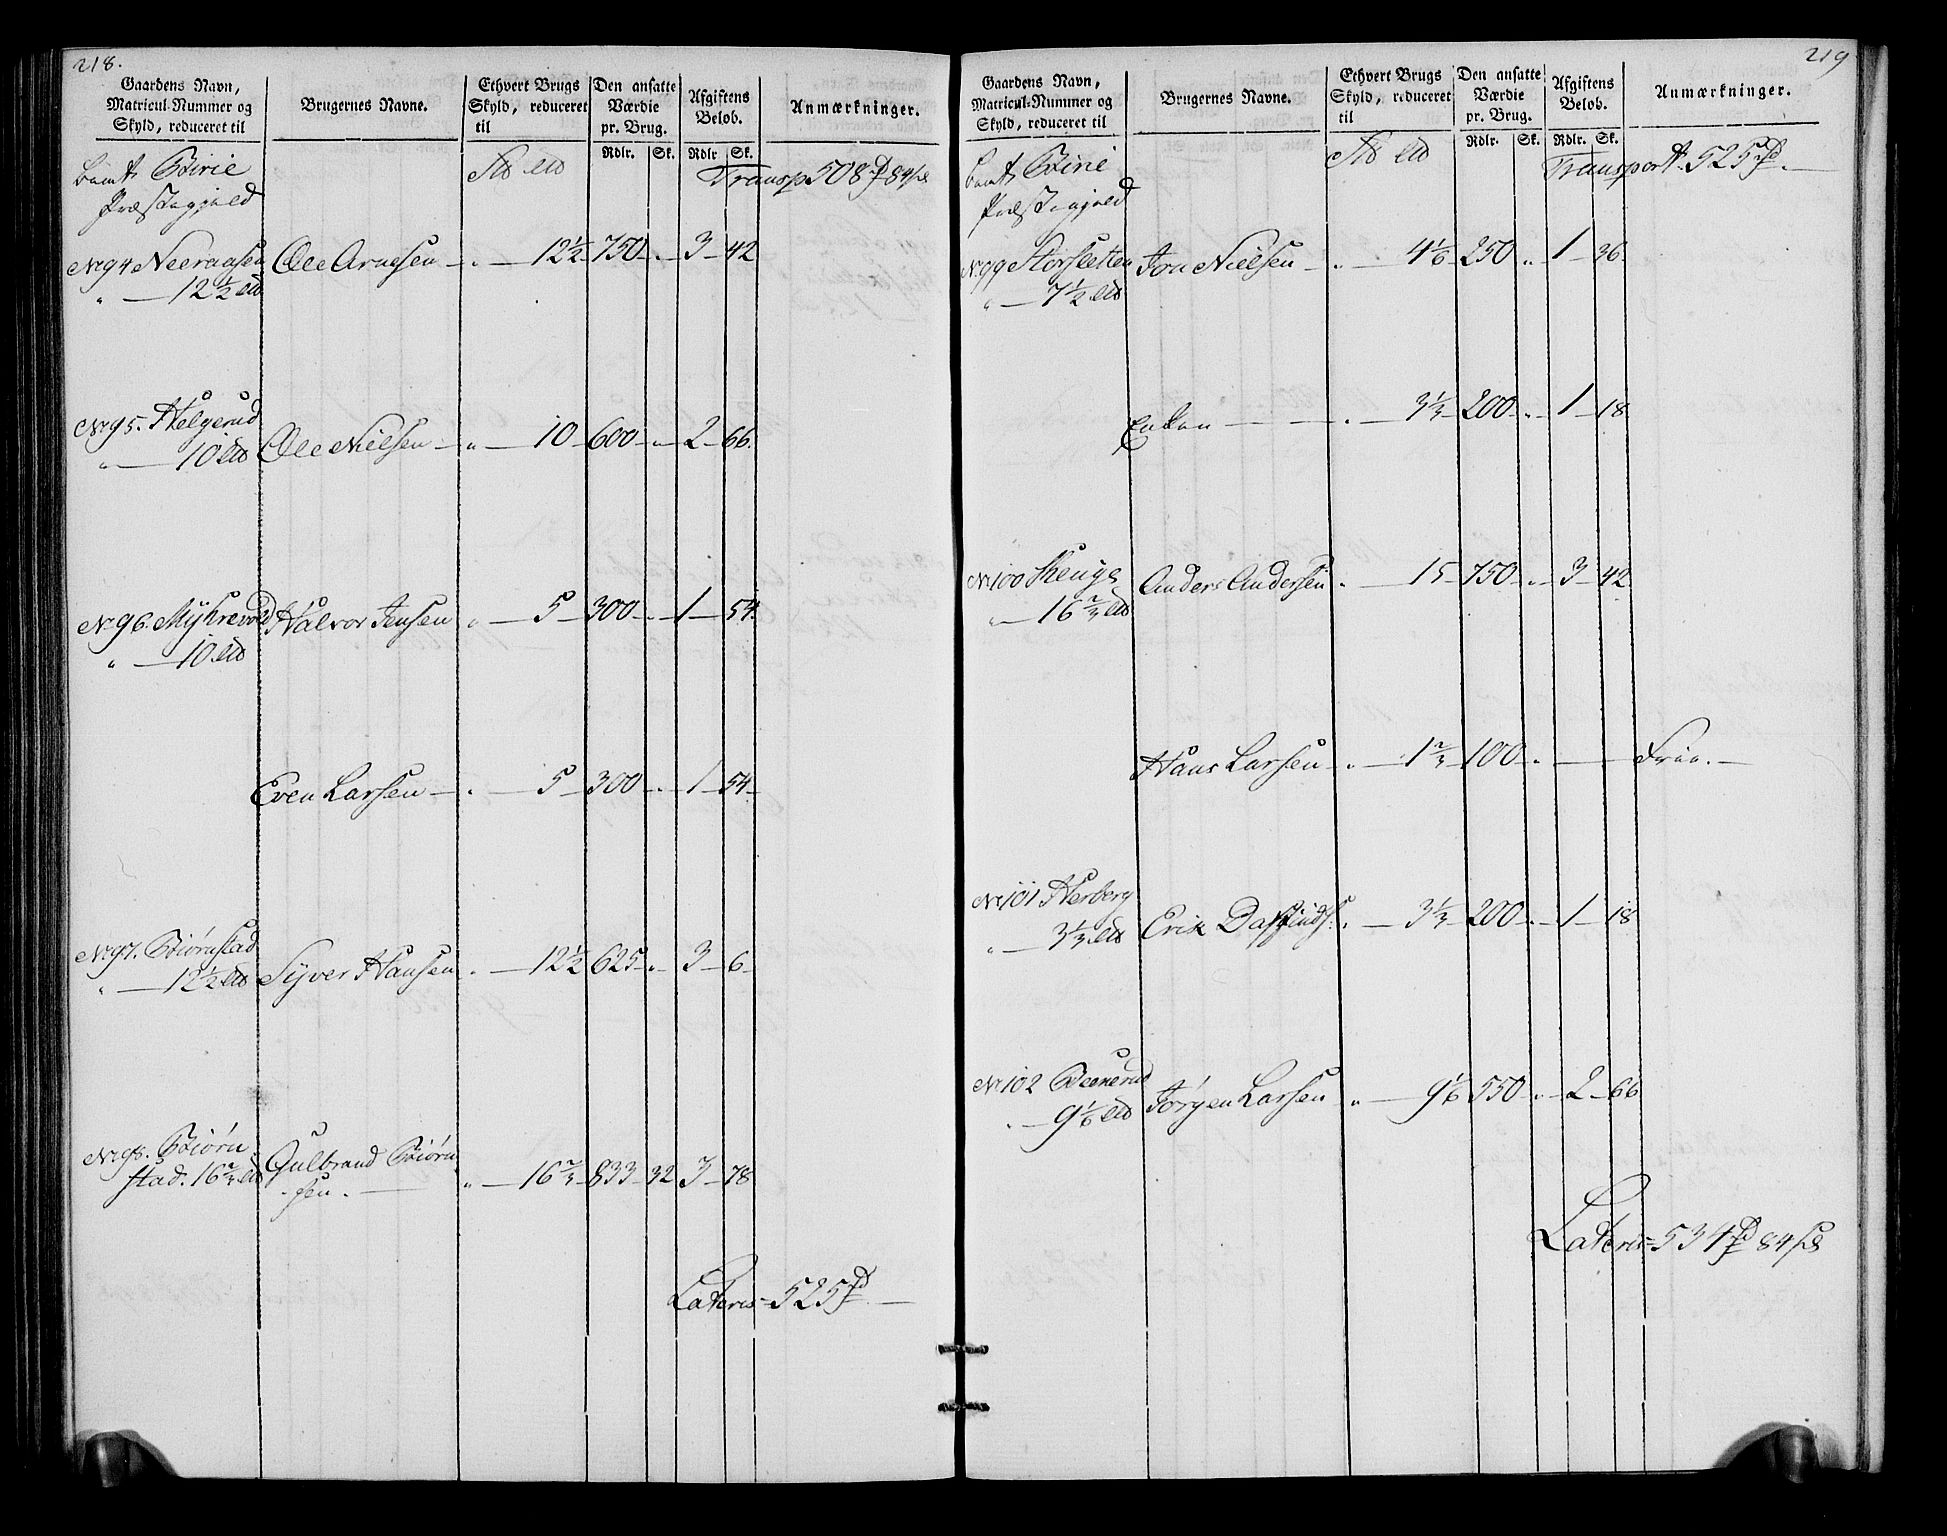 218.
Gaardens Navn, Matricul-Nummer og Skyld, reduceret til
Brugernes Navne.
Ethvert Brugs Skyld, reduceret til
Den ansatte Værdie pr. Brug.
Afgiftens Beløb.
Anmærkninger.
Rdlr. Sk. Rdlr Sk.
Birie Præstegjeld
Transp 508 84
No 94 Neeraasen Ole Arnesen 12½ 750 3 42
12½
No 95. Helgerud
10 Ole Nielsen 10 600 2 66.
No 96. Myhrevold Halvor Jensen 5 300 1 54.
10
Even Larsen 5 300 1 54.
No 97. Biørnstad
12½ Syver Hansen 12½ 625 3 6
No 98. Biørn
stad. 16⅔ Gulbrand Biørn
sen. 16⅔ 833 32 3 78
Lateris 525
219
Gaardens Navn, Matricul-Nummer og Skyld, reduceret til
Brugernes Navne.
Ethvert Brugs Skyld, reduceret til
Den ansatte Værdie pr. Brug.
Afgiftens Beløb.
Anmærkninger.
Rdlr. Sk. Rdlr. Sk.
Birie Præstegjeld
Transport 525
No 99 Storsletten Jon Nielsen 4⅙ 250 1 36.
7½
Enken 3⅓ 200 1 18
No 100 Skeuge Anders Andersen 15 750 3 42
16⅔
Hans Larsen 1⅔ 100 Frie.
No 101 Herberg
3⅓ Erik 3⅓ 200 1 18
No 102
9⅙ Jørgen Larsen 9⅙ 550 2 66
Lateris 534 84